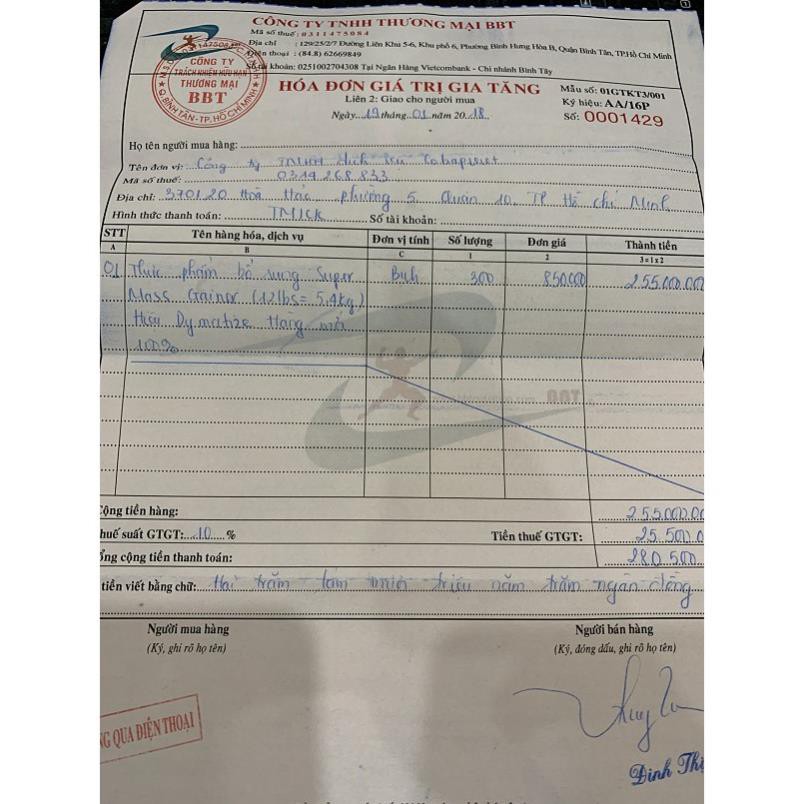 CÔNG TY TNHH THƯƠNG MẠI BBT
Mã số thuế: 0311475084
Địa chỉ : 129/25/2/7 Đường Liên Khu 5-6, Khu phố 6, Phường Bình Hưng Hòa B, Quận Bình Tân, TP.Hồ Chí Minh
Điện thoại : (84.8) 62669849
Số tài khoản: 0251002704308 Tại Ngân Hàng Vietcombank - Chi nhánh Bình Tây
CÔNG TY
TRÁCH NHIỆM HỮU HẠN
THƯƠNG MẠI
BBT
Q.BÌNH TÂN-TP.HỒ CHÍ MINH
HÓA ĐƠN GIÁ TRỊ GIA TĂNG
Liên 2: Giao cho người mua
Ngày 19 tháng 01 năm 2018
Mẫu số: 01GTKT3/001
Ký hiệu: AA/16P
Số: 0001429
Họ tên người mua hàng:
Tên đơn vị: Công ty TNHH
Mã số thuế: 0314268833
Địa chỉ: Hoà Hảo phường 5 Quận 10 TP Hồ Chí Minh
Hình thức thanh toán: TM/CK Số tài khoản:
STT Tên hàng hóa, dịch vụ Đơn vị tính Số lượng Đơn giá Thành tiền
A B C 1 2 3=1x2
01 Thực phẩm bổ sung Super 300 850000 255.000.00
Mass Gainer (12lbs = 5,4kg)
Hiệu Dymatize Hàng mới
100%
Cộng tiền hàng: 255.000.00
huế suất GTGT: 10 % Tiền thuế GTGT: 25.500.0
ổng cộng tiền thanh toán: 280.500
tiền viết bằng chữ: Hai trăm tám mươi triệu năm trăm ngàn đồng
Người mua hàng Người bán hàng
(Ký, ghi rõ họ tên) (Ký, đóng dấu, ghi rõ họ tên)
NG QUA ĐIỆN THOẠI
Đinh Thị